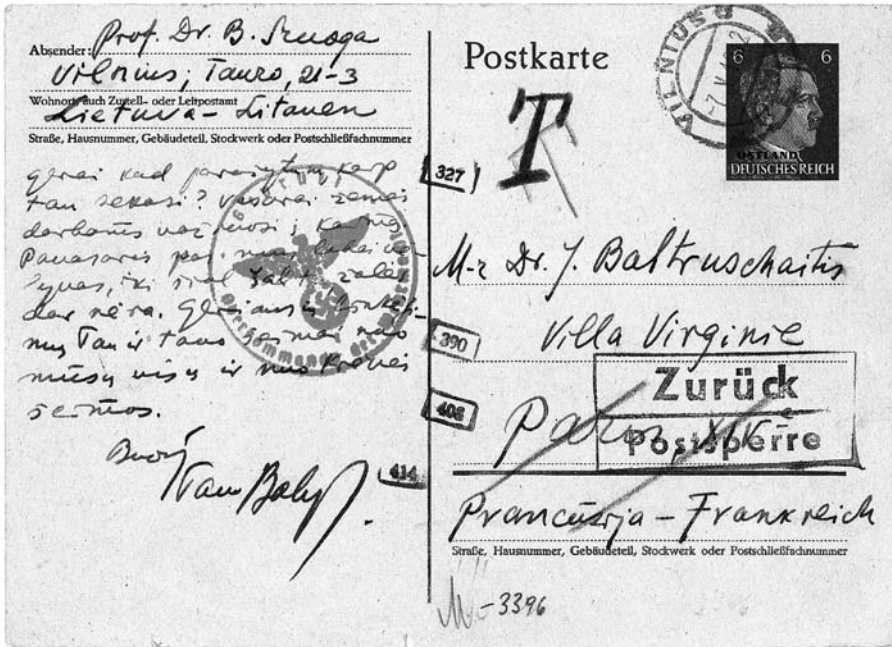 Absender: Prof. Dr. B. Sruoga
Vilnius, Tauro, 21-3
Wohnort, auch Zustell- oder Leitpostamt
Lietuva - Litauen
Straße, Hausnummer, Gebäudeteil, Stockwerk oder Postschließfachnummer
gerai kad parašytum, kaip
tau sekasi?
darbams važiuosi į
Pavasaris pas mus labai
iki šiol
dar nėra. Geriausi linkėji-
mų Tau ir tavo šeimai nuo
mūsų visų ir nuo Krėvės
šeimos.
Tavo Balys.
Oberkommando der Wehrmacht
Postkarte
T
VILNIUS
6 6
OSTLAND
DEUTSCHES REICH
327
390
408
414
M-r Dr. J. Baltruschaitis
Villa Virginie
Zurück
Postsperre
Paris
Prancūzija - Frankreich
Straße, Hausnummer, Gebäudeteil, Stockwerk oder Postschließfachnummer
-3396